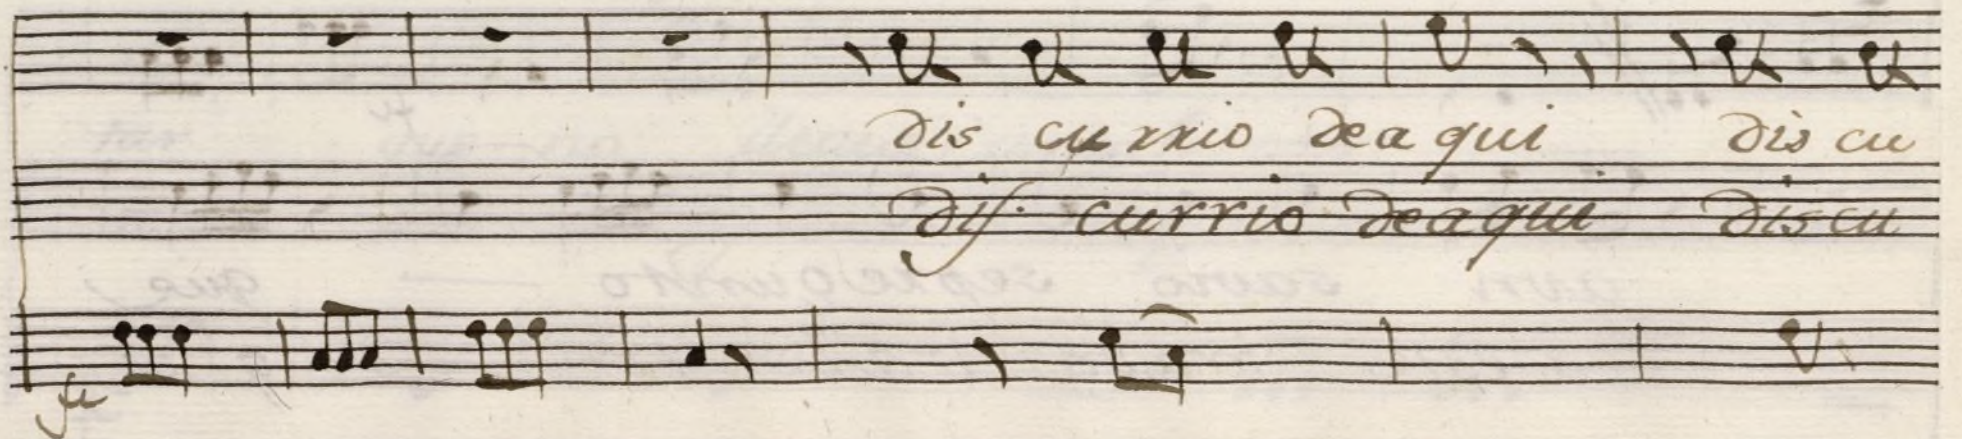 dis currio dea qui dis cu
dis currio dea qui dis cu
fe